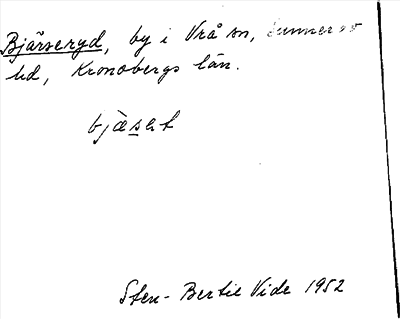 Bjärseryd, by i Vrå sn, Sunnerbo
hd, Kronobergs län.
bjæsət
Sten-Bertil Vide 1952